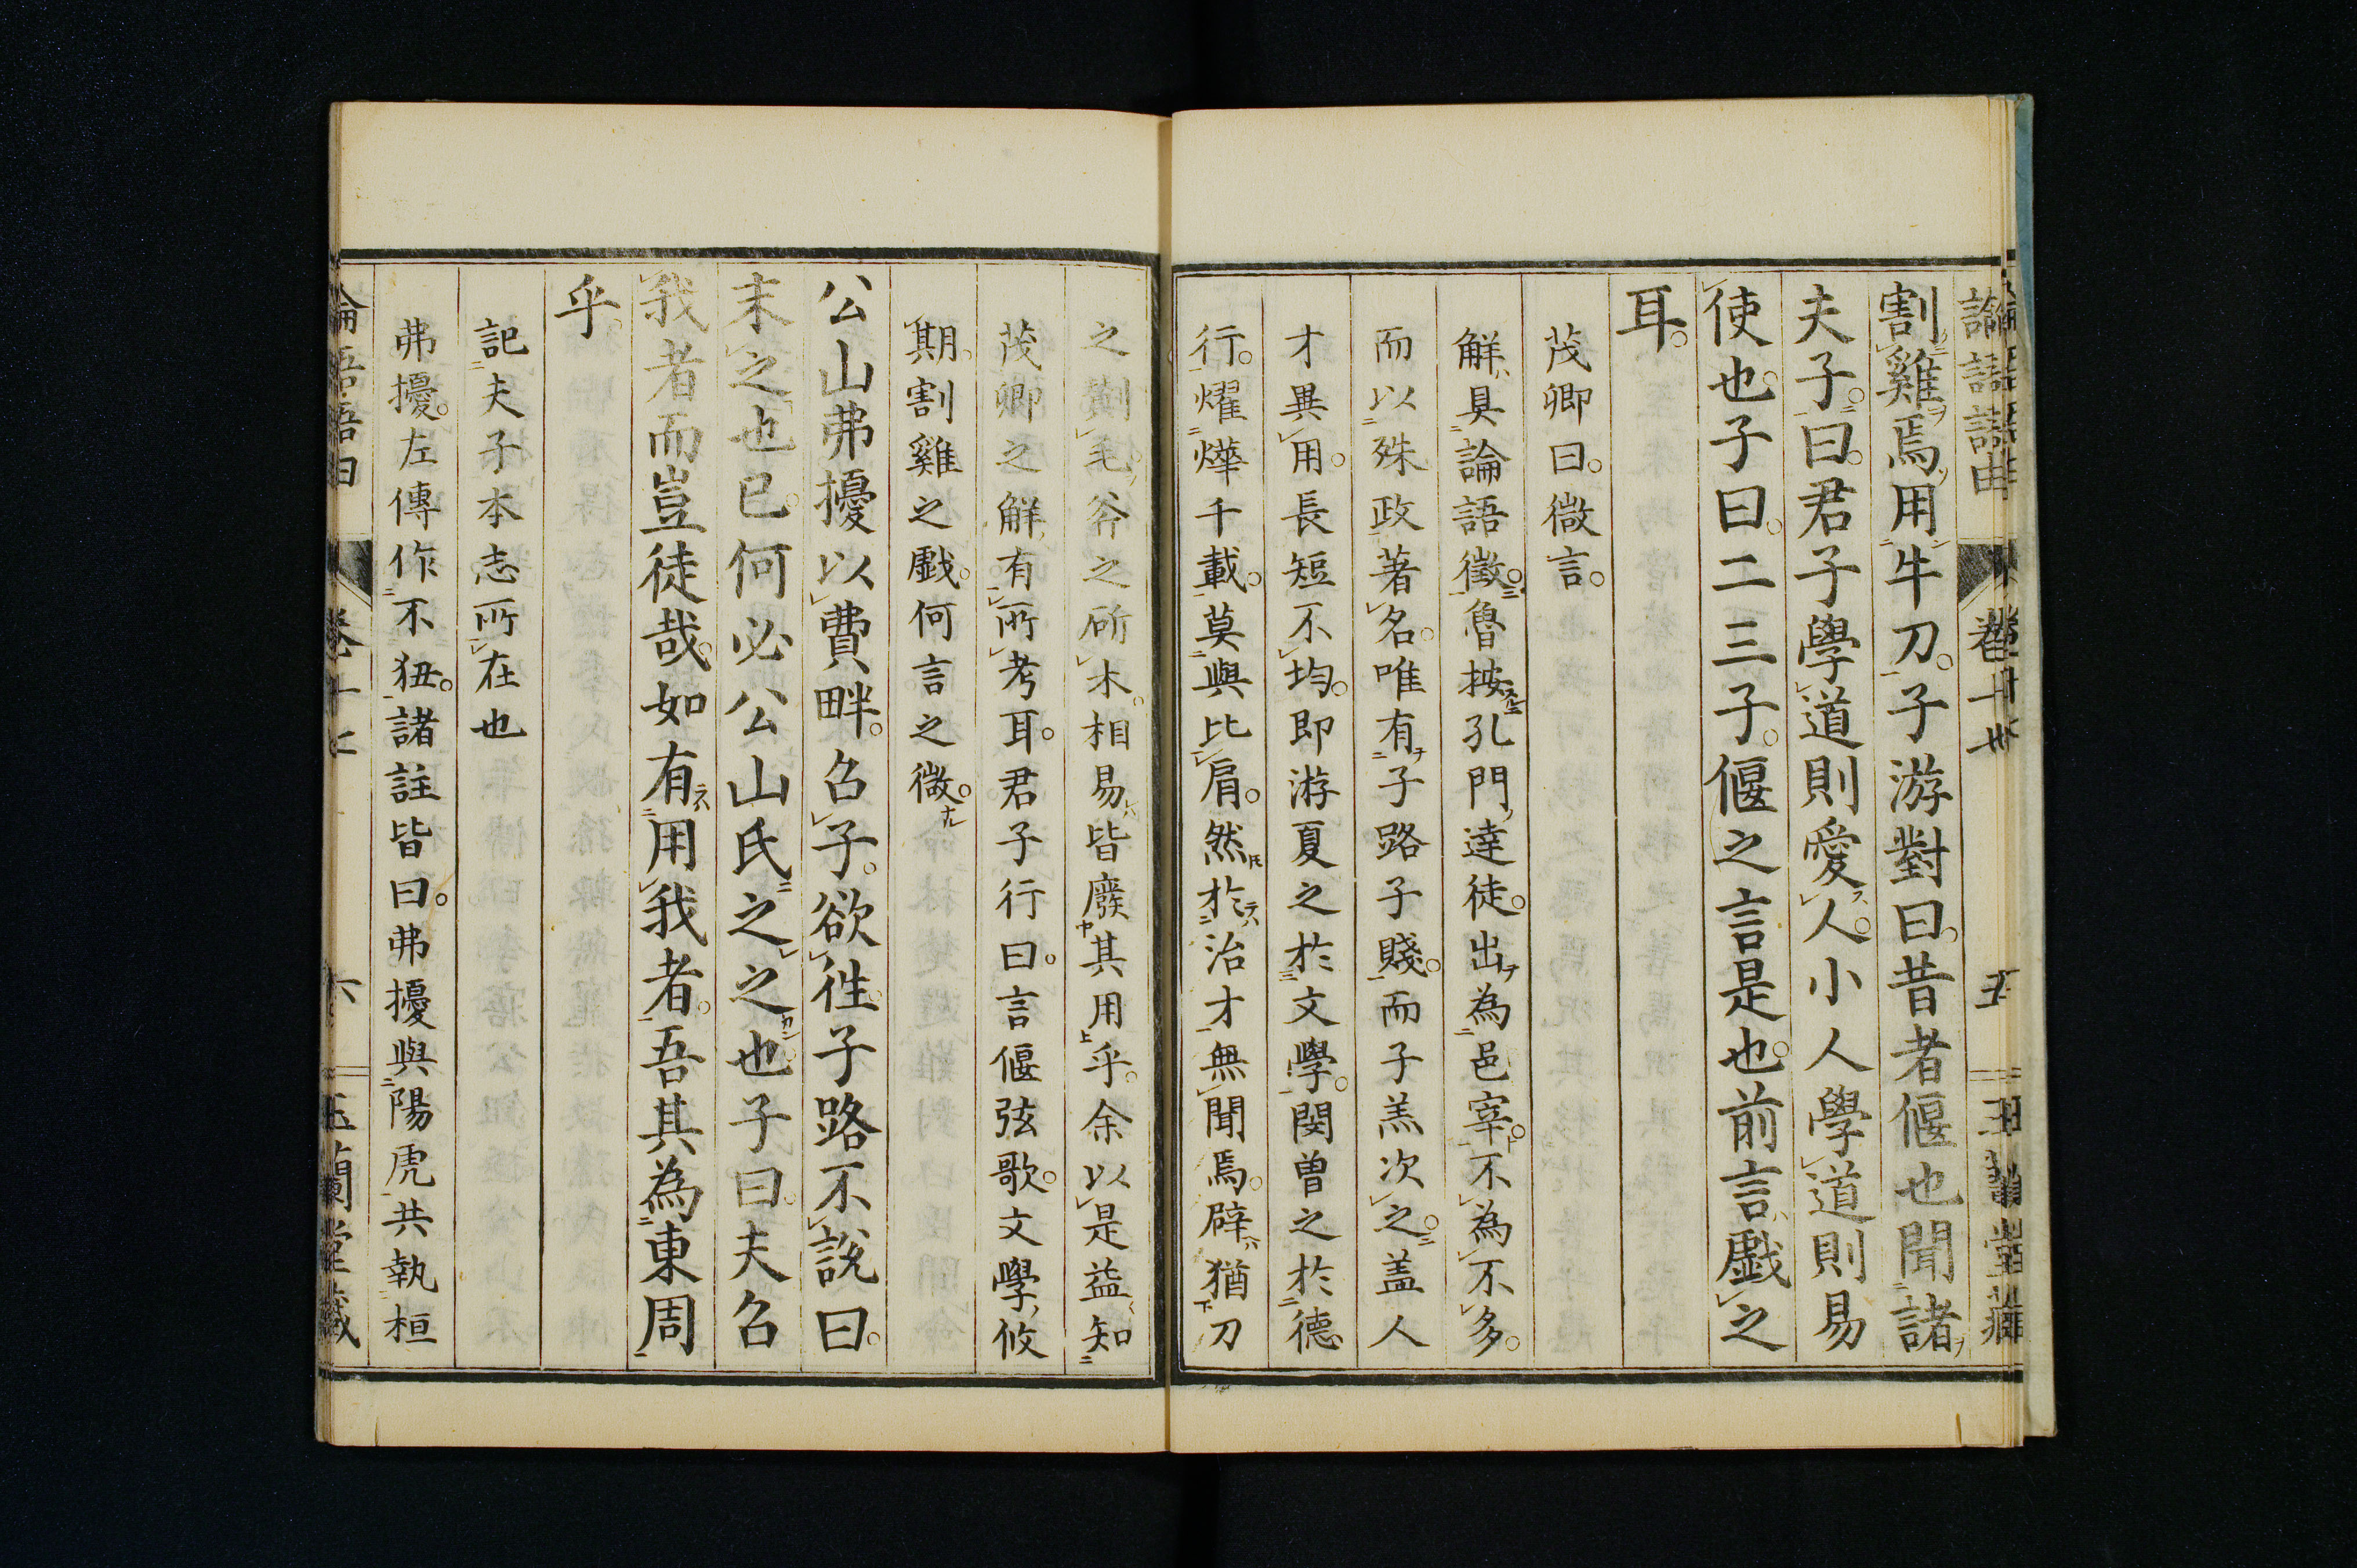 論語語由 卷十七 五 玉蘭堂藏
割雞焉用牛刀。子游對曰。昔者偃也聞諸
夫子。曰。君子學道則愛人。小人學道則易
使也。子曰。二三子。偃之言是也。前言戲之
耳。
茂卿曰。微言。
解具論語徵。魯按孔門達徒。出為邑宰。不為不多。
而以殊政著名。唯有子路子賤。而子羔次之。盖人
才異用。長短不均。即游夏之於文學。閔曾之於德
行。燿燁千載。莫與比肩。然於治才無聞焉。辟猶刀
之剃毛斧之斫木。相易皆廢其用乎。余以是益知
茂卿之解有所考耳。君子行曰。言偃弦歌。文學攸
期。割雞之戲。何言之微。
公山弗擾以費畔。召子。欲徃。子路不說曰。
末之也已。何必公山氏之之也。子曰。夫召
我者而豈徒哉。如有用我者。吾其為東周
乎。
記夫子本志所在也
弗擾。左傳作不狃。諸註皆曰。弗擾與陽虎共執桓
論語語由 卷十七 六 玉蘭堂藏